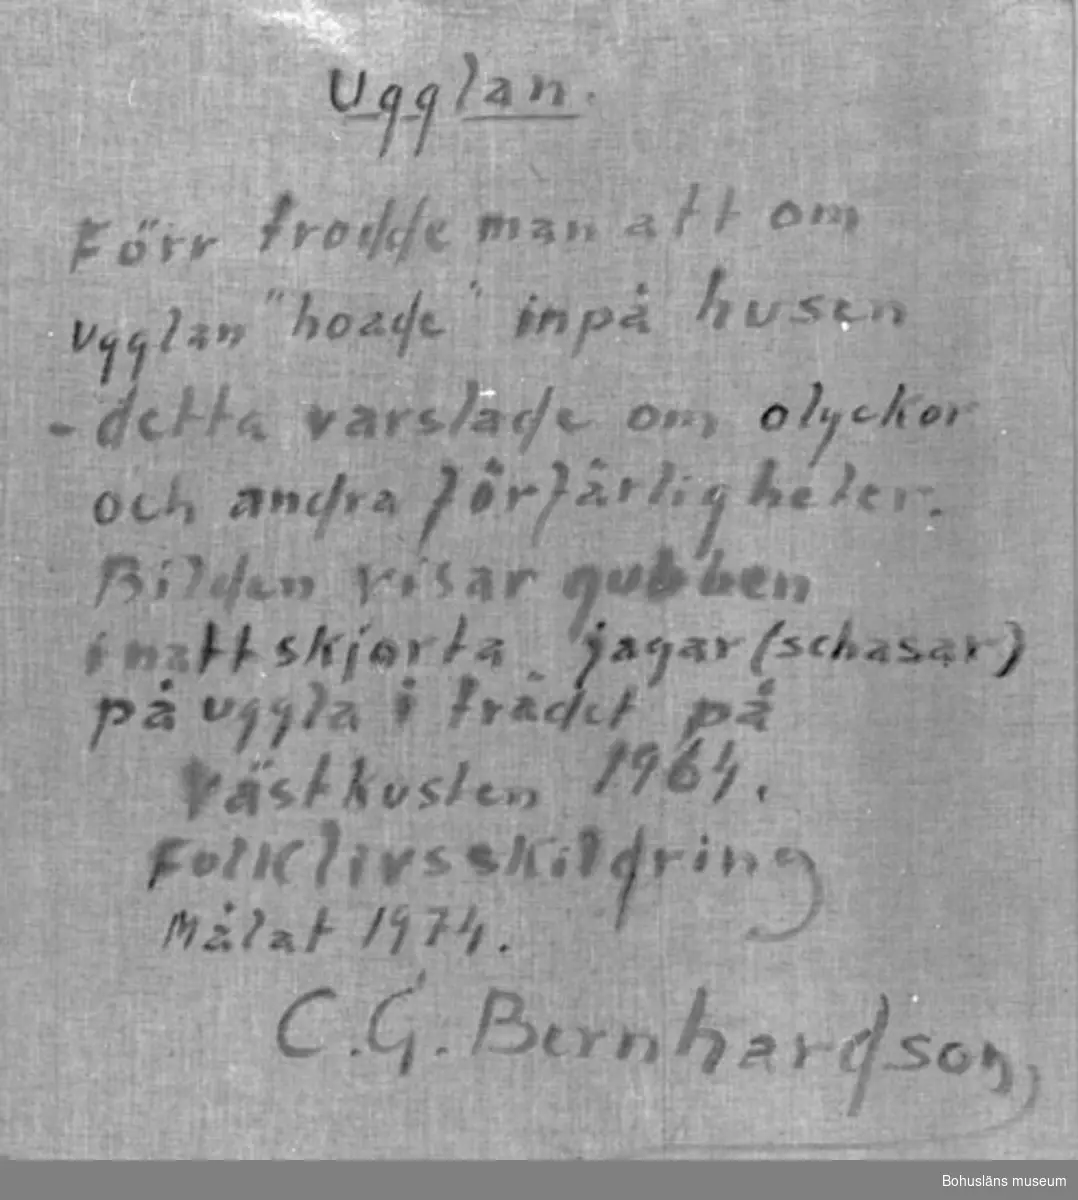 Ugglan.
Förr trodde man att om
ugglan "hoade" inpå husen
- detta varslade om olyckor
och andra förfärligheter.
Bilden visar gubben
i nattskjorta jagar (schasar)
på uggla i trädet på
Västkusten 1964.
Folklivsskildring
Målat 1974.
C.G. Bernhardson,
Bohusläns museum